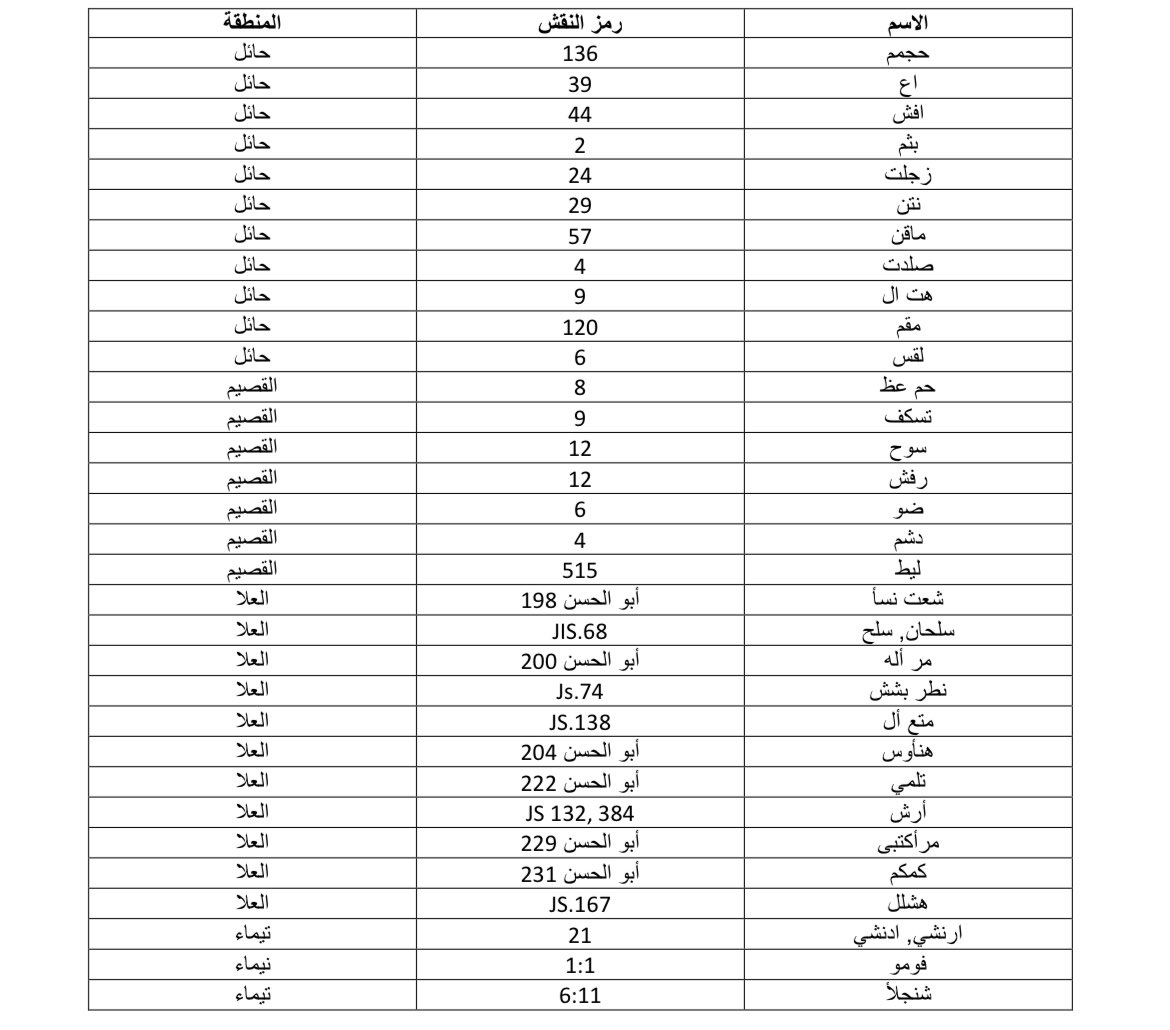 الاسم رمز النقش المنطقة
حجمم 136 حائل
اع 39 حائل
افش 44 حائل
بثم 2 حائل
زجلت 24 حائل
نتن 29 حائل
ماقن 57 حائل
صلدت 4 حائل
هت ال 9 حائل
مقم 120 حائل
لقس 6 حائل
حم عظ 8 القصيم
تسكف 9 القصيم
سوح 12 القصيم
رفش 12 القصيم
ضو 6 القصيم
دشم 4 القصيم
ليط 515 القصيم
شعت نسأ أبو الحسن 198 العلا
سلحان, سلح JIS.68 العلا
مر أله أبو الحسن 200 العلا
نطر بشش Js.74 العلا
متع أل JS.138 العلا
هنأوس أبو الحسن 204 العلا
تلمي أبو الحسن 222 العلا
أرش JS 132, 384 العلا
مرأكتبى أبو الحسن 229 العلا
كمكم أبو الحسن 231 العلا
هشلل JS.167 العلا
ارنشي, ادنشي 21 تيماء
فومو 1:1 نيماء
شنجلأ 6:11 تيماء